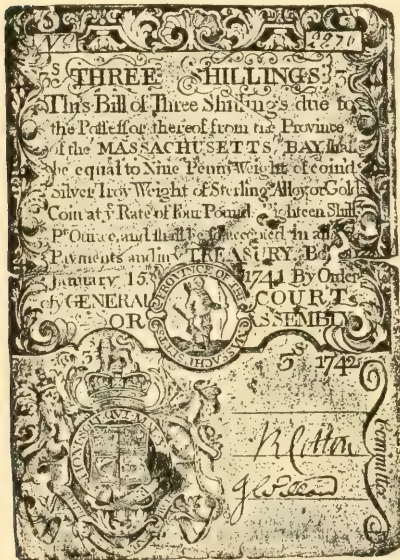 No 2270
3s THREE SHILLINGS 3s
This Bill of Three Shillings due to
the Possessor thereof from the Province
of the MASSACHUSETTS BAY shall
be equal to Nine Penny Weight of coind
Silver Troy Weight of Sterling Alloy or Gold
Coin at ye Rate of Four Pound Eighteen Shill
Pr Ounce, and shall be accepted in all
Payments and in ye TREASURY, Boston
January 15 1741 By Order
of GENERAL COURT
OR ASSEMBLY
PROVINCE OF THE MASSACHUSETTS
3s 3s 1742
HONI SOIT QUI MAL Y
R Cotton
J Willard
Committee